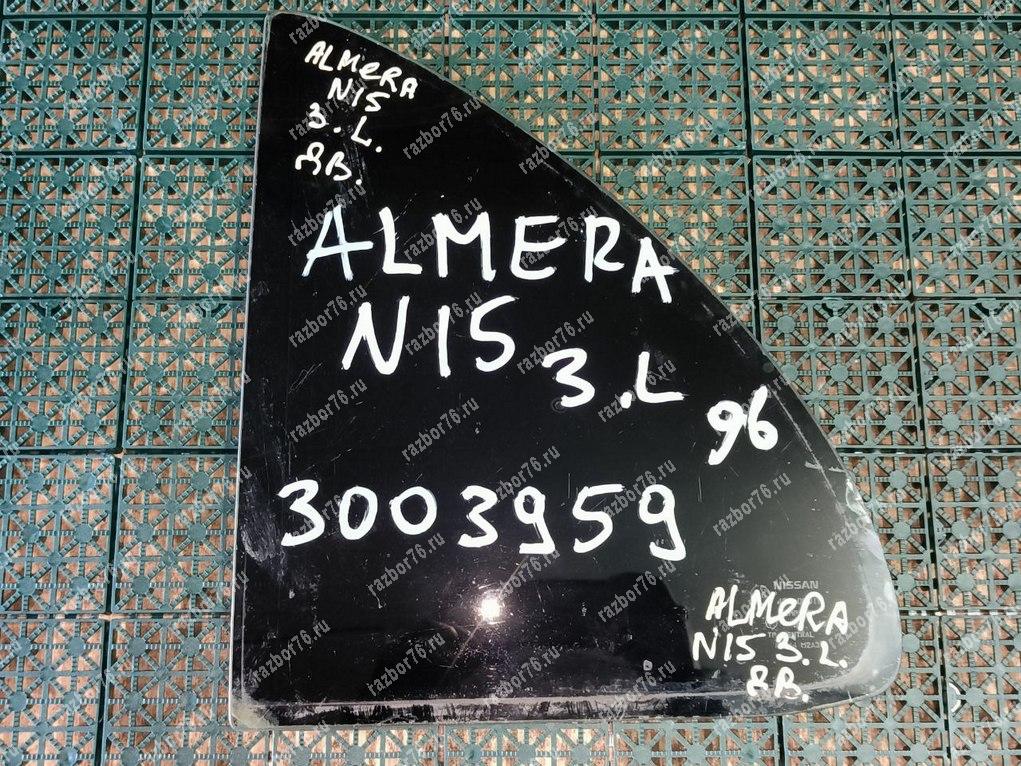 ALMERA
N15
3. L.
ЯВ.
ALMERA
N15
3.L
96
3003959
NISSAN
ALMERA
N15 3. L.
ЯВ.
razbor76.ru